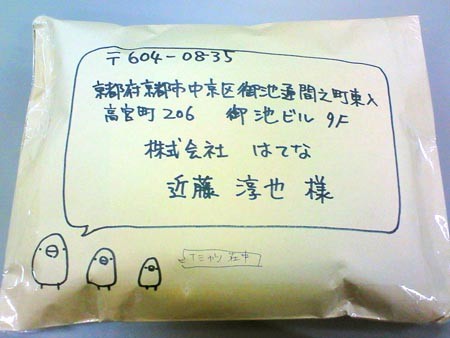 〒604-0835
京都府京都市中京区御池通間之町東入
高宮町206 御池ビル 9F
株式会社 はてな
近藤 淳也 様
在中